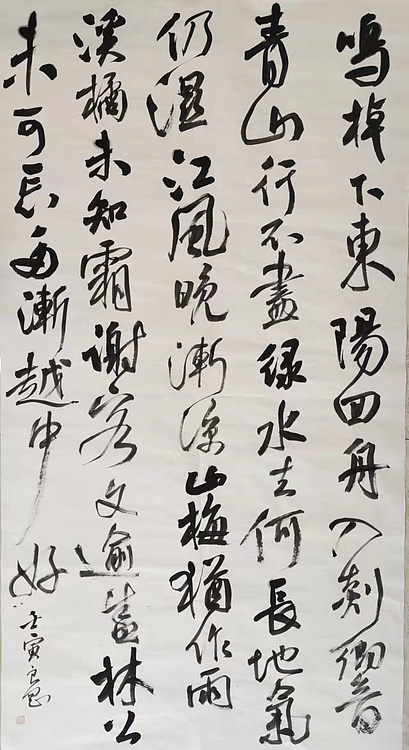 鳴棹下東陽回舟入剡響
青山行不盡緑水去何長地氣
仍濕江風晚漸涼山梅猶作雨
溪橘未知霜謝客文逾盛林公
未可忘多漸越中好
壬寅